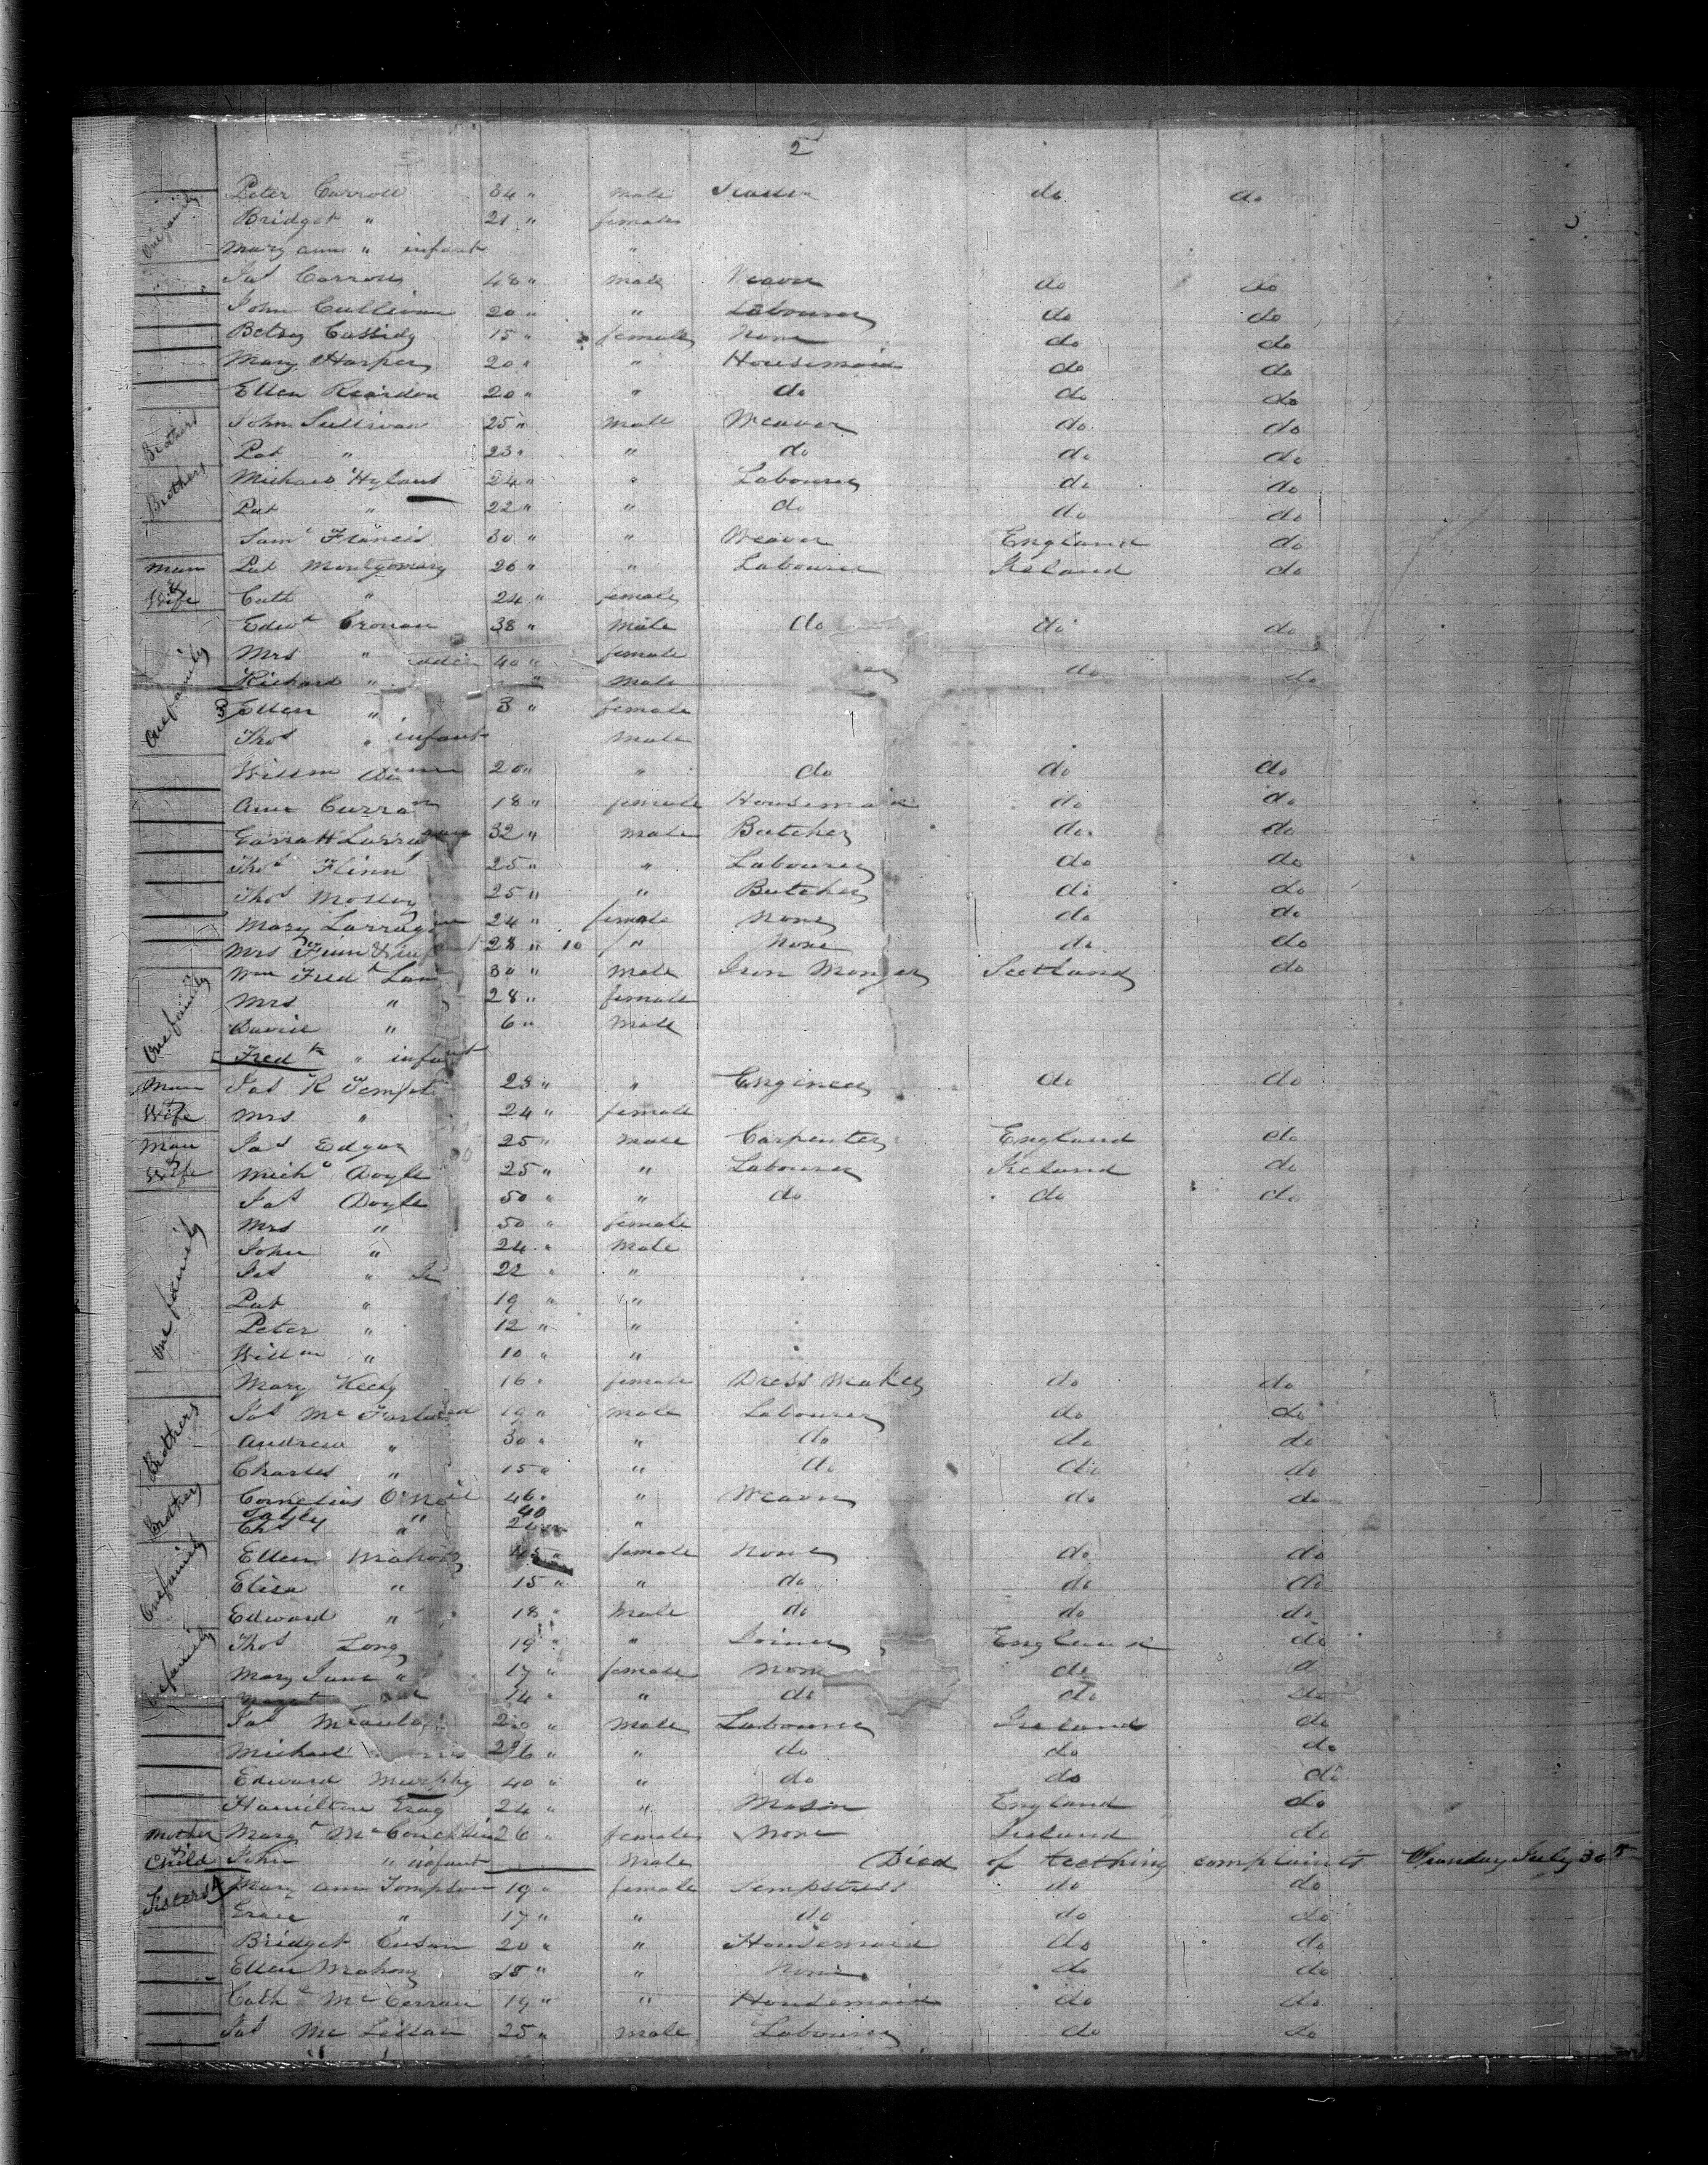 2
One family Peter Carroll 34 " male do do
Bridget " 21 " female
Mary ann " infant "
Jas Carroll 40 " male Weaver do do
John Cullivan 20 " " Labourer do do
Betsy Cassidy 15 " female None do do
Mary Harper 20 " " Housemaid do do
Ellen Reardon 20 " " do do do
Brothers John Sullivan 25 " Male Weaver do do
Pat " 23 " " do do do
Brothers Michael Hyland 24 " " Labourer do do
Pat " 22 " " do do do
Saml Francis 30 " " Weaver England do
Man Pat Montgomery 26 " " Labourer Ireland do
& Wife Cath " 24 " female
One family Edwd Cronan 38 " Male do do do
Mrs " 40 " female
Richard " " Male do do
3 Ellen " 3 " female
Thos " infant Male
Willm 20 " " do do do
Ann Curran 18 " female Housemaid do do
Garratt 32 " male Butcher do do
Thos Flinn 25 " " Labourer do do
Thos Molloy 25 " " Butcher do do
Mary 24 " female None do do
Mrs 28 " 10 " None do do
One family Wm Fredk 30 " Male Iron Monger Scotland do
Mrs " 28 " female
David " 6 " Male
Fredk " infant
Man Jas R Tempst 28 " " Engineer do do
& Wife Mrs " 24 " female
Man Jas Edgar 25 " male Carpenter England do
& Wife Michl Doyle 25 " " Labourer Ireland do
One family Jas Doyle 50 " " do do do
Mrs " 50 " female
John " 24 " Male
Jas " Jr 22 " "
Pat " 19 " "
Peter " 12 " "
Willm " 10 " "
Mary Keely 16 " female Dress Maker do do
Brothers Jas Mc Farland 19 " male Labourer do do
Andrew " 30 " " do do do
Charles " 15 " " do do do
Brothers Cornelius O'Neil 46 " " Weaver do do
" 40
" "
One family Ellen Mahony 45 " female None do do
Elisa " 15 " " do do do
Edward " 18 " Male do do do
One family Thos Long 19 " " Joiner England do
Mary Jane " 17 " female None do d
14 " " do do do
Jas 20 " Male Labourer Ireland do
Michael 26 " " do do do
Edward Murphy 40 " " do do do
Hamilton Gray 24 " " Mason England do
Mother Margt McConchlin 26 " female None Ireland do
& Child John " infant Male Died of teething complaints Sunday July 30th
Sisters Mary ann Tompson 19 " female Sempstress do do
Grace " 17 " " do do do
Bridget Cusan 20 " " Housemaid do do
Ellen Mahony 18 " " None do do
Cathe McCerran 19 " " Housemaid do do
Jas Mc Lellan 25 " male Labourer do do